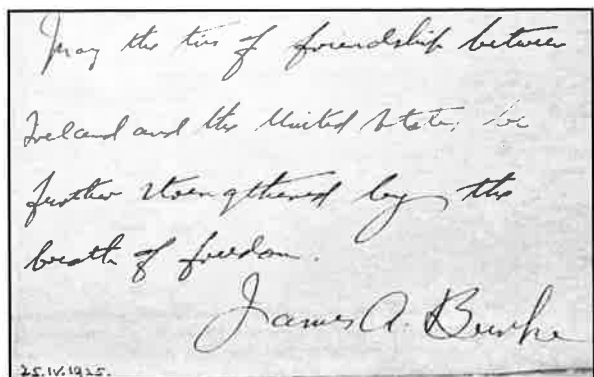 May the ties of friendship between
Ireland and the United States be
further strengthened by the
breath of freedom.
James A. Burke
25.IV.1925.